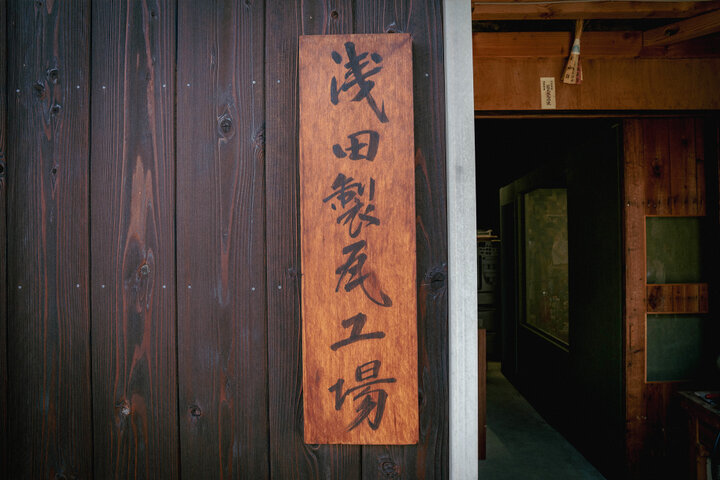 浅田製瓦工場